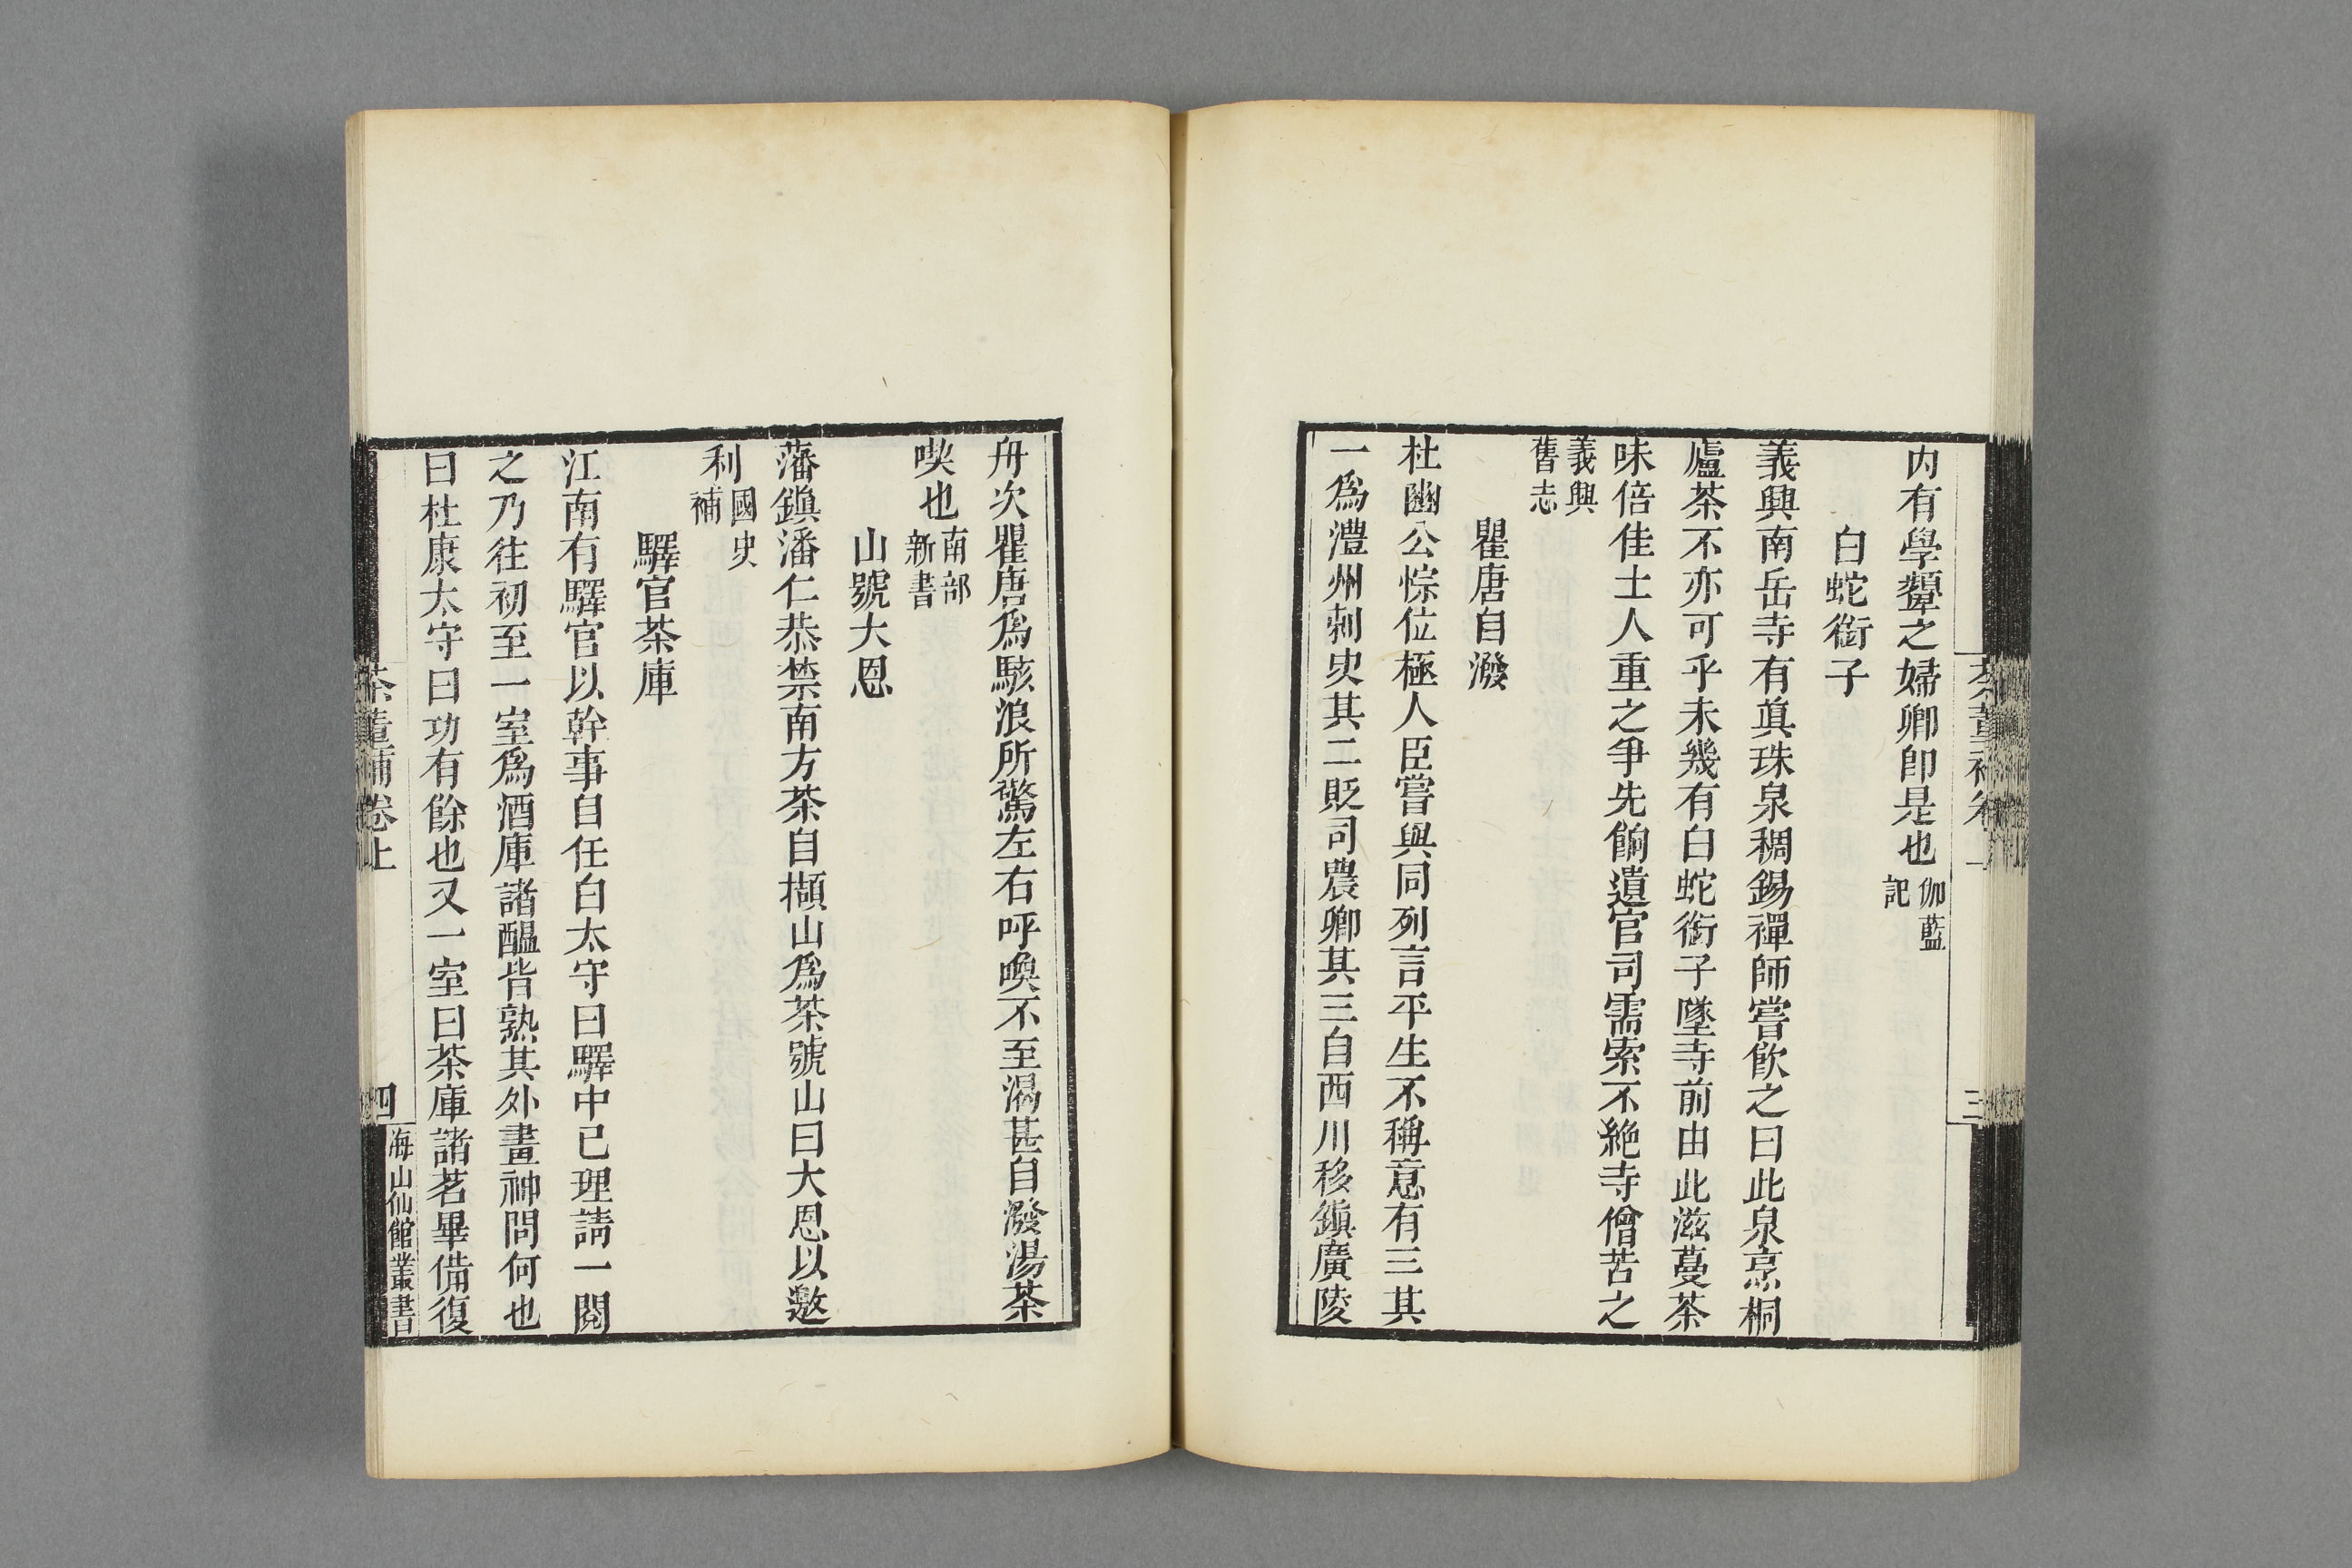 內有學顰之婦卿卽是也伽藍記
白蛇銜子
義興南岳寺有眞珠泉稠錫禪師嘗飮之曰此泉烹桐
廬茶不亦可乎未幾有白蛇銜子墜寺前由此滋蔓茶
味倍佳士人重之爭先餉遺官司需索不絶寺僧苦之
義興舊志
瞿唐自潑
杜豳公悰位極人臣嘗與同列言平生不稱意有三其
一爲澧州刺史其二貶司農卿其三自西川移鎭廣陵
舟次瞿唐爲駭浪所驚左右呼喚不至渴甚自潑湯茶
喫也南部新書
山號大恩
藩鎭潘仁恭禁南方茶自擷山爲茶號山曰大恩以邀
利國史補
驛官茶庫
江南有驛官以幹事自任白太守曰驛中已理請一閱
之乃往初至一室爲酒庫諸醞皆熟其外畫神問何也
曰杜康太守曰功有餘也又一室曰茶庫諸茗畢備復
茶董補卷上
四
海山仙館叢書